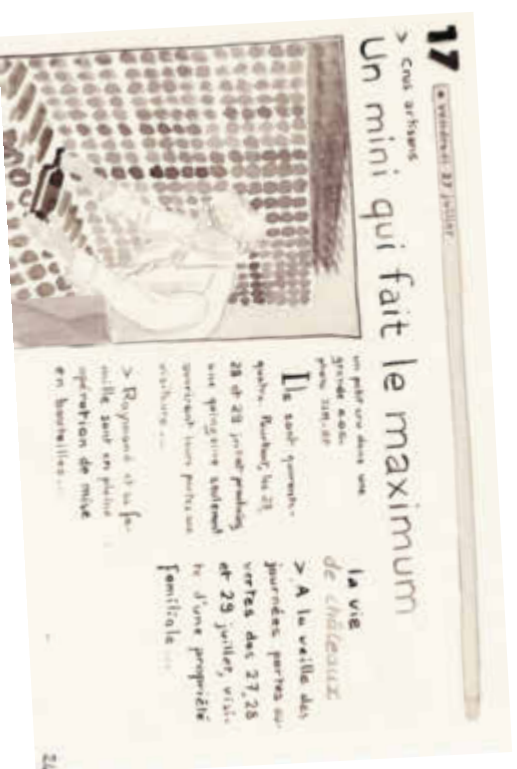 17
• vendredi 27 juillet
> Crus artisans
Un mini qui fait le maximum
un petit cru dans une
grande a.o.c.
Ils sont quarante-
quatre. Pourtant, les 27,
28 et 29 juillet prochains,
une quinzaine seulement
ouvriront leurs portes aux
visiteurs...
> Raymond et sa fa-
mille sont en pleine
opération de mise
en bouteilles...
la vie
de châteaux
> A la veille des
journées portes ou-
vertes des 27, 28
et 29 juillet, visi-
te d'une propriété
familiale...